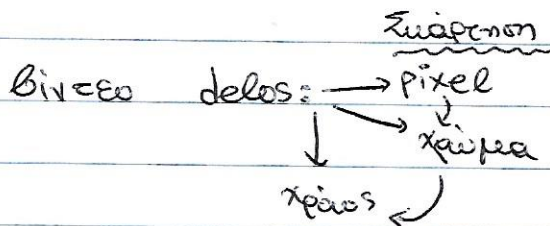 Συάρτηση
βίντεο delos: → pixel
χρώμα
χρόνος